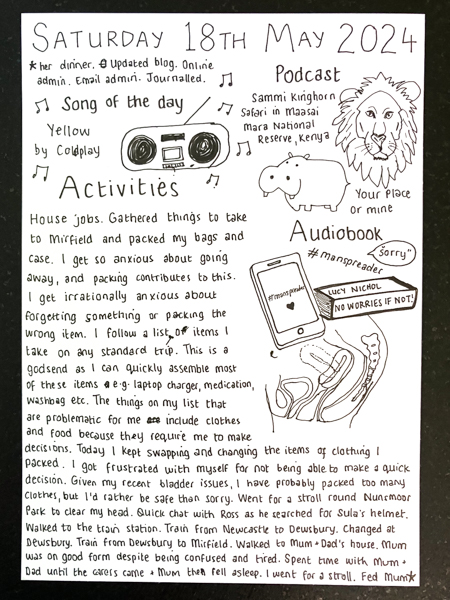 SATURDAY 18TH MAY 2024
*her dinner. Updated blog. Online
admin. Email admin. Journalled.
Song of the day
Yellow
by Coldplay
Podcast
Sammi Kinghorn
Safari in Maasai
Mara National
Reserve, Kenya
Your Place
or mine
Activities
House jobs. Gathered things to take
to Mirfield and packed my bags and
case. I get so anxious about going
away, and packing contributes to this.
I get irrationally anxious about
forgetting something or packing the
wrong item. I follow a list of items I
take on any standard trip. This is a
godsend as I can quickly assemble most
of these items e.g. laptop charger, medication,
washbag etc. The things on my list that
are problematic for me include clothes
and food because they require me to make
decisions. Today I kept swapping and changing the items of clothing I
packed. I got frustrated with myself for not being able to make a quick
decision. Given my recent bladder issues, I have probably packed too many
clothes, but I'd rather be safe than sorry. Went for a stroll round Nunsmoor
Park to clear my head. Quick chat with Ross as he searched for Sula's helmet.
Walked to the train station. Train from Newcastle to Dewsbury. Changed at
Dewsbury. Train from Dewsbury to Mirfield. Walked to Mum + Dad's house. Mum
was on good form despite being confused and tired. Spent time with Mum +
Dad until the carers came + Mum then fell asleep. I went for a stroll. Fed Mum*
Audiobook
#manspreader
"sorry"
#manspreader
LUCY NICHOL
NO WORRIES IF NOT!